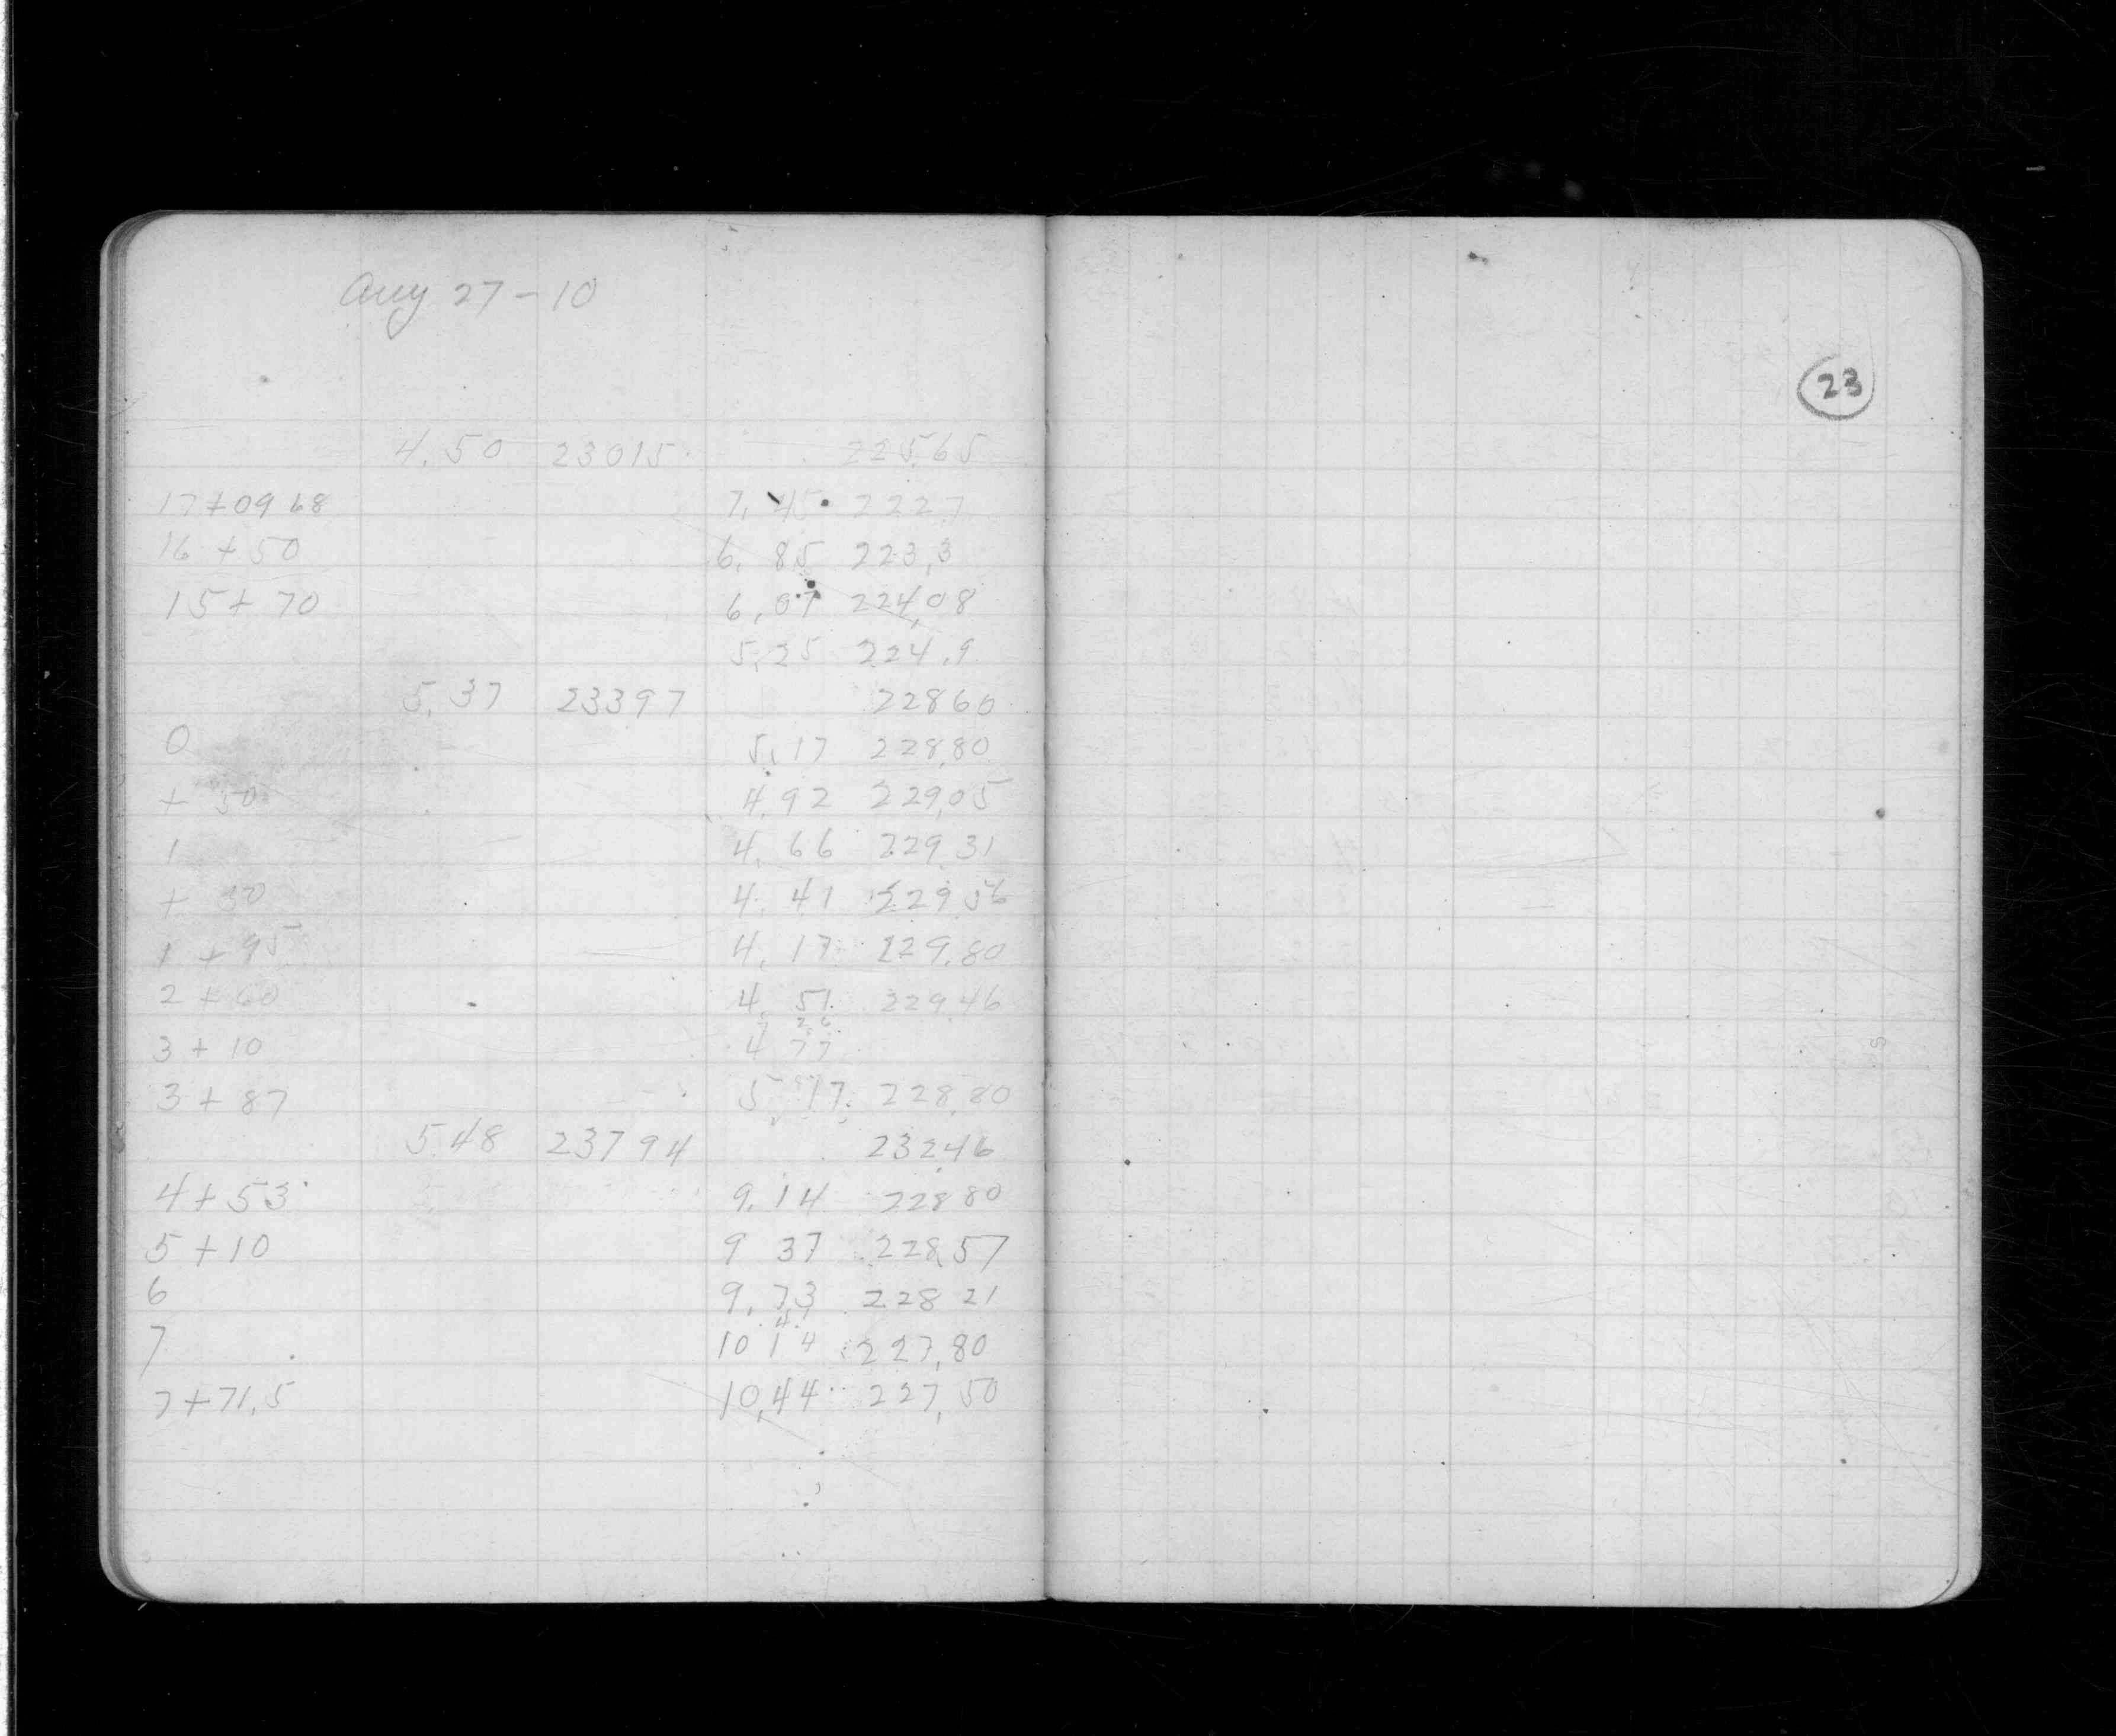 Aug 27 - 10
23
4.50 23015 22565
17+09 68 7,45 2227
16 + 50 6, 85 223,3
15 + 70 6,07 224,08
5,25 224.9
5.37 23397 22860
0 5,17 228,80
+ 50 4,92 229,05
1 4, 66 229,31
+ 50 4. 41 229 56
1 + 95 4, 17 229.80
2 + 60 4 51 229,46
26
3 + 10 4 77
3 + 87 5 17 228,80
5.48 23794 23246
4 + 53 9.14 228 80
5 + 10 9 37 228,57
6 9.73 228 21
4
7 10 14 227,80
7 + 71.5 10,44 227, 50